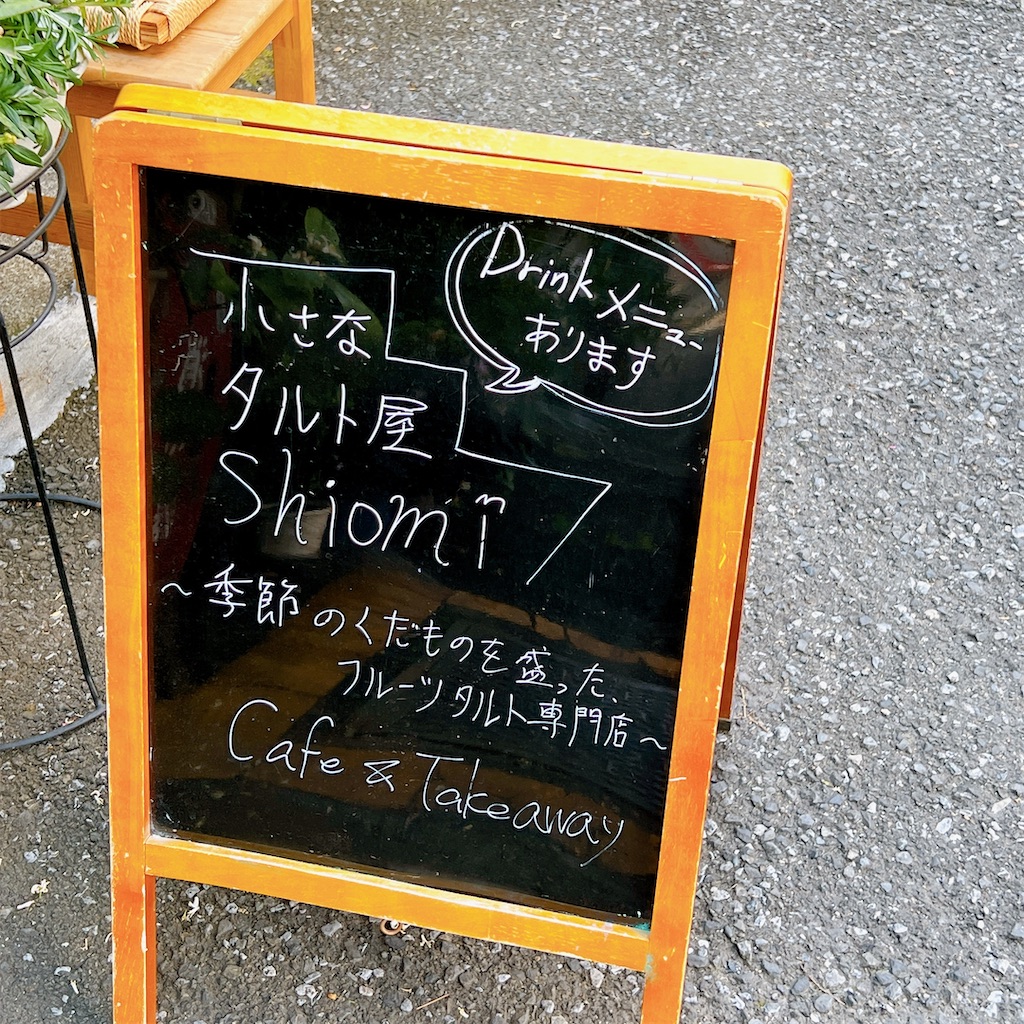 Drink メニュー
あります
小さな
タルト屋
Shiomi
～季節のくだものを盛った、
フルーツタルト専門店～
Cafe & Takeaway